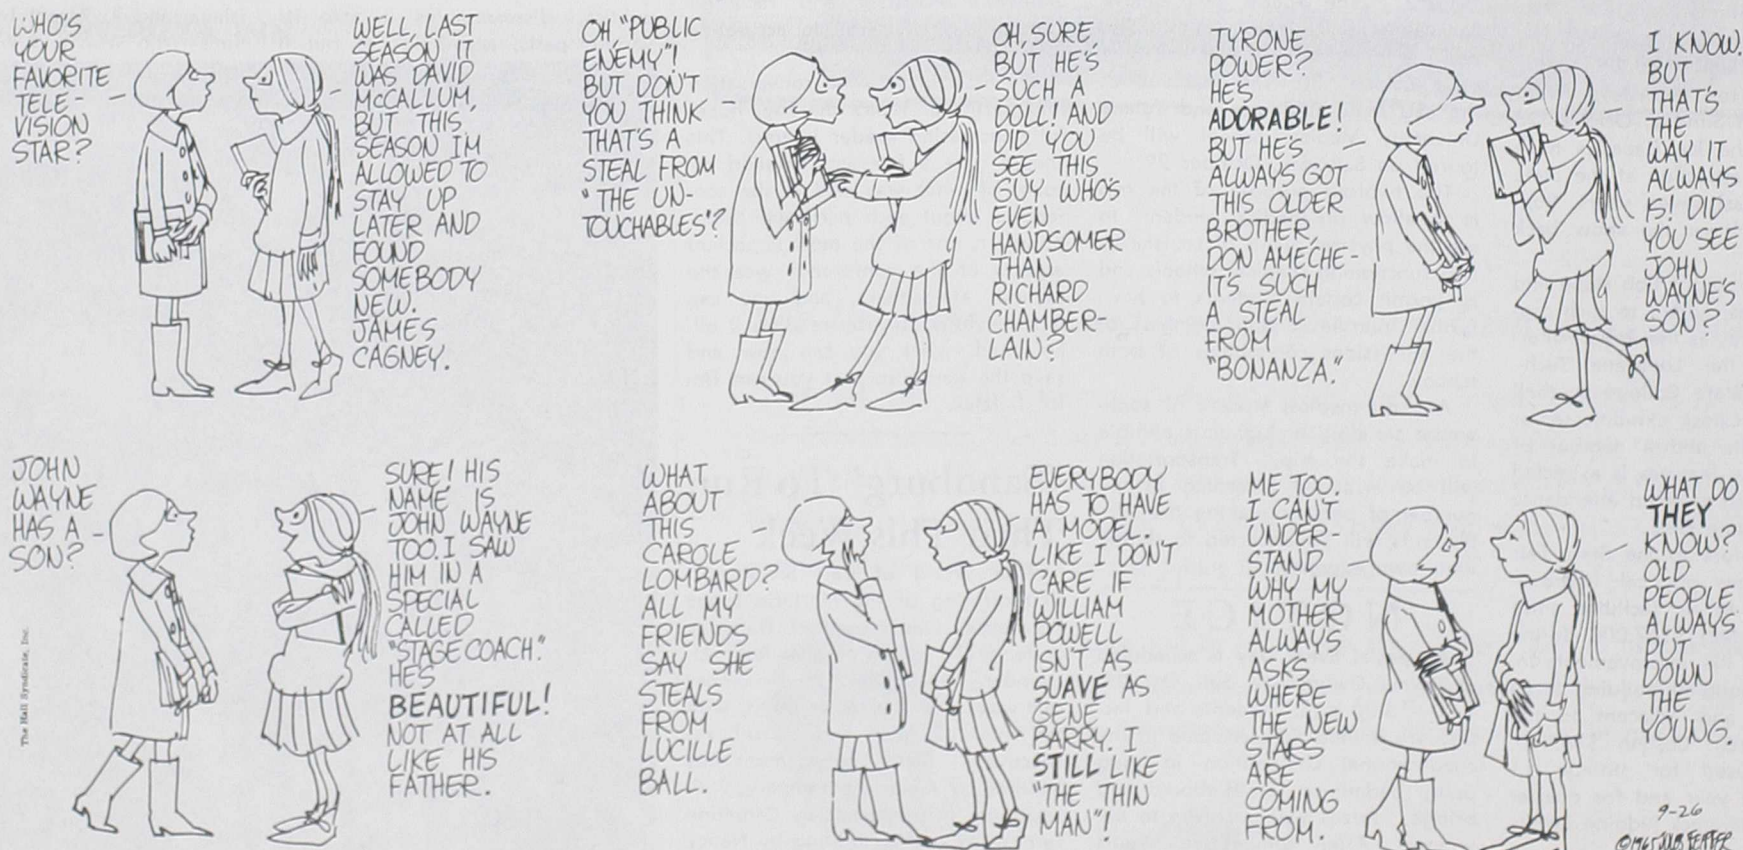 WHO'S
YOUR
FAVORITE
TELE-
VISION
STAR?
WELL, LAST
SEASON IT
WAS DAVID
McCALLUM,
BUT THIS
SEASON I'M
ALLOWED TO
STAY UP
LATER AND
FOUND
SOMEBODY
NEW.
JAMES
CAGNEY.
OH, "PUBLIC
ENEMY"!
BUT DON'T
YOU THINK
THAT'S A
STEAL FROM
"THE UN-
TOUCHABLES"?
OH, SURE
BUT HE'S
SUCH A
DOLL! AND
DID YOU
SEE THIS
GUY WHO'S
EVEN
HANDSOMER
THAN
RICHARD
CHAMBER-
LAIN?
TYRONE
POWER?
HE'S
ADORABLE!
BUT HE'S
ALWAYS GOT
THIS OLDER
BROTHER,
DON AMECHE-
IT'S SUCH
A STEAL
FROM
"BONANZA."
I KNOW.
BUT
THAT'S
THE
WAY IT
ALWAYS
IS! DID
YOU SEE
JOHN
WAYNE'S
SON?
JOHN
WAYNE
HAS A
SON?
SURE! HIS
NAME IS
JOHN WAYNE
TOO. I SAW
HIM IN A
SPECIAL
CALLED
"STAGECOACH".
HE'S
BEAUTIFUL!
NOT AT ALL
LIKE HIS
FATHER.
WHAT
ABOUT
THIS
CAROLE
LOMBARD?
ALL MY
FRIENDS
SAY SHE
STEALS
FROM
LUCILLE
BALL.
EVERYBODY
HAS TO HAVE
A MODEL.
LIKE I DON'T
CARE IF
WILLIAM
POWELL
ISN'T AS
SUAVE AS
GENE
BARRY. I
STILL LIKE
"THE THIN
MAN"!
ME TOO.
I CAN'T
UNDER-
STAND
WHY MY
MOTHER
ALWAYS
ASKS
WHERE
THE NEW
STARS
ARE
COMING
FROM.
WHAT DO
THEY
KNOW?
OLD
PEOPLE
ALWAYS
PUT
DOWN
THE
YOUNG.
The Hall Syndicate, Inc.
9-26
©1965 JULES FEIFFER